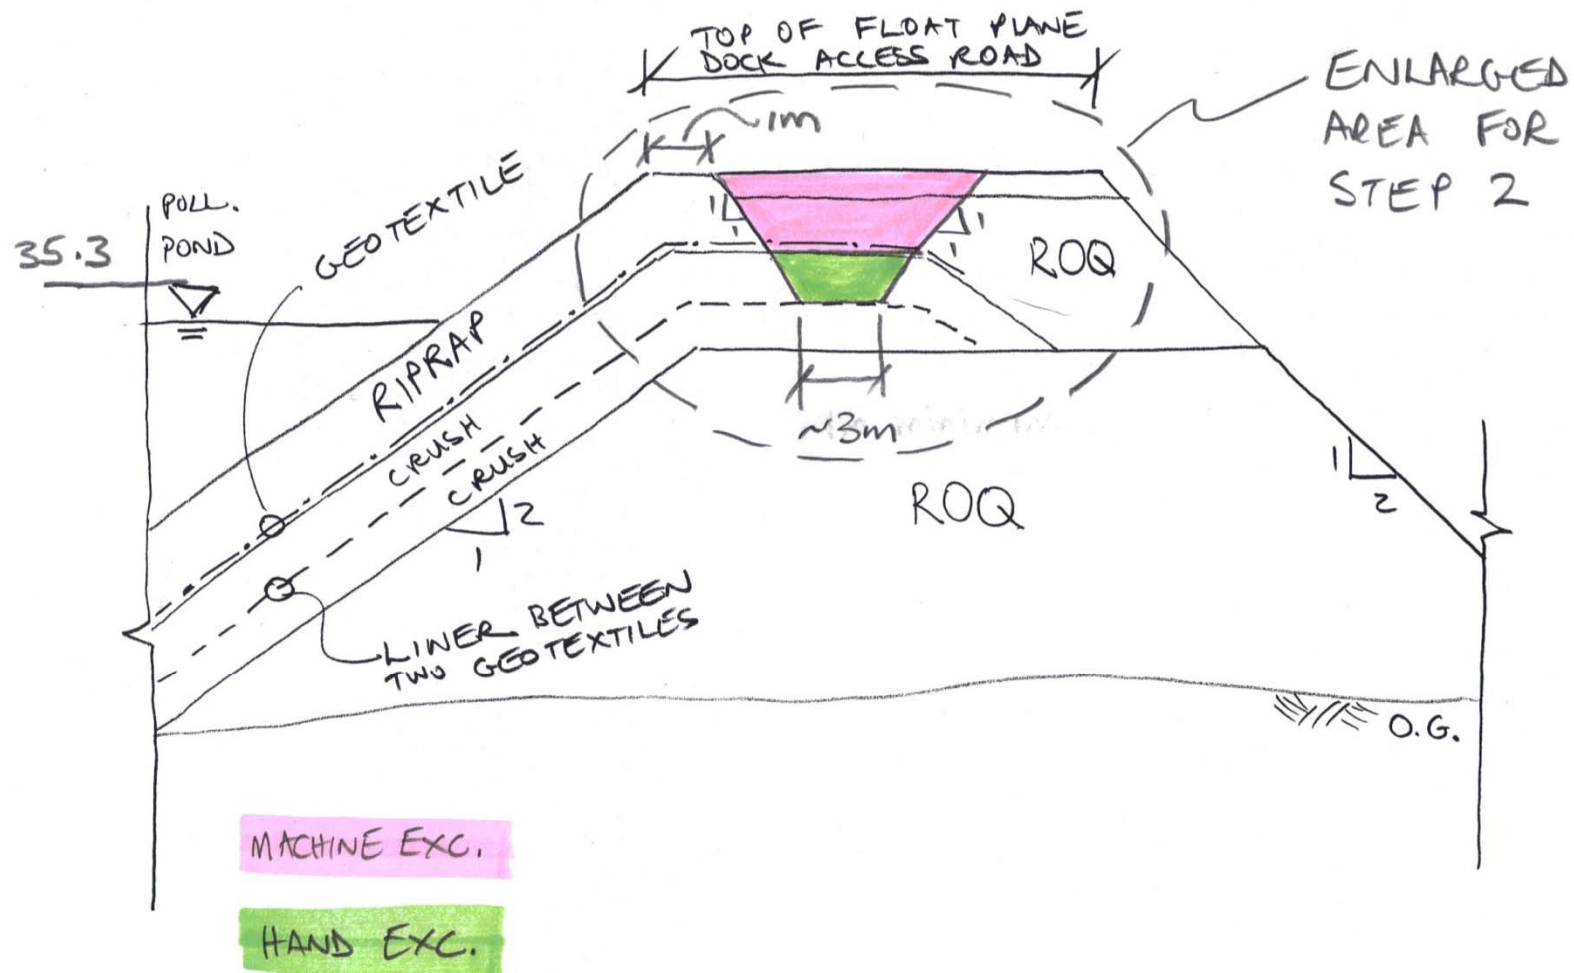 TOP OF FLOAT PLANE
DOCK ACCESS ROAD
ENLARGED
AREA FOR
STEP 2
~1m
GEOTEXTILE
POLL.
POND
35.3
1
1
1
1
ROQ
RIPRAP
CRUSH
CRUSH
~3m
2
1
ROQ
1
2
LINER BETWEEN
TWO GEOTEXTILES
O.G.
MACHINE EXC.
HAND EXC.